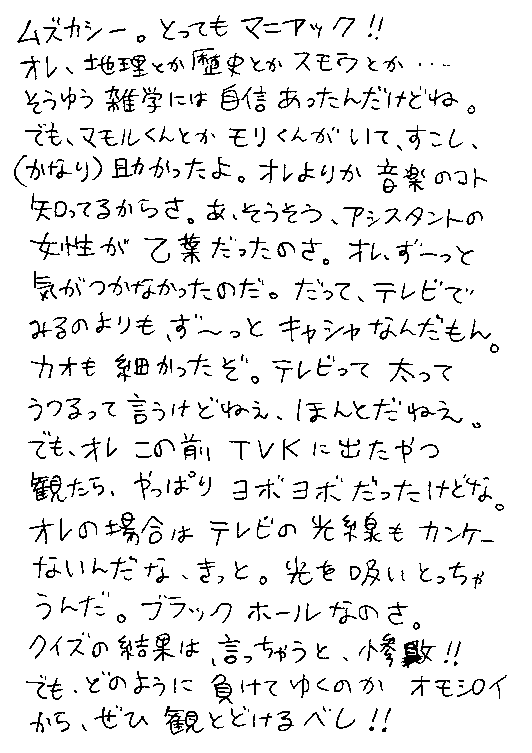 ムズカシー。とっても マニアック!!
オレ、地理とか歴史とか スモウとか・・・
そうゆう 雑学には 自信 あったんだけどね。
でも、マモルくんとか モリくんが いて、すこし、
(かなり)助かったよ。オレよりか 音楽のコト
知ってるからさ。あ、そうそう、アシスタントの
女性が 乙葉だったのさ。オレ、ず〜っと
気がつかなかったのだ。だって、テレビで
みるのよりも、ず〜っと キャシャなんだもん。
カオも 細かったぞ。テレビって 太って
うつるって 言うけどねえ、ほんとだねえ。
でも、オレ この前 TVKに出たやつ
観たら、やっぱり ヨボヨボだったけどな。
オレの場合は テレビの 光線も カンケー
ないんだな、きっと。光を 吸いとっちゃ
うんだ。ブラックホールなのさ。
クイズの結果は、言っちゃうと、惨敗!!
でも、どのように 負けてゆくのか オモシロイ
から、ぜひ 観とどけるベし!!